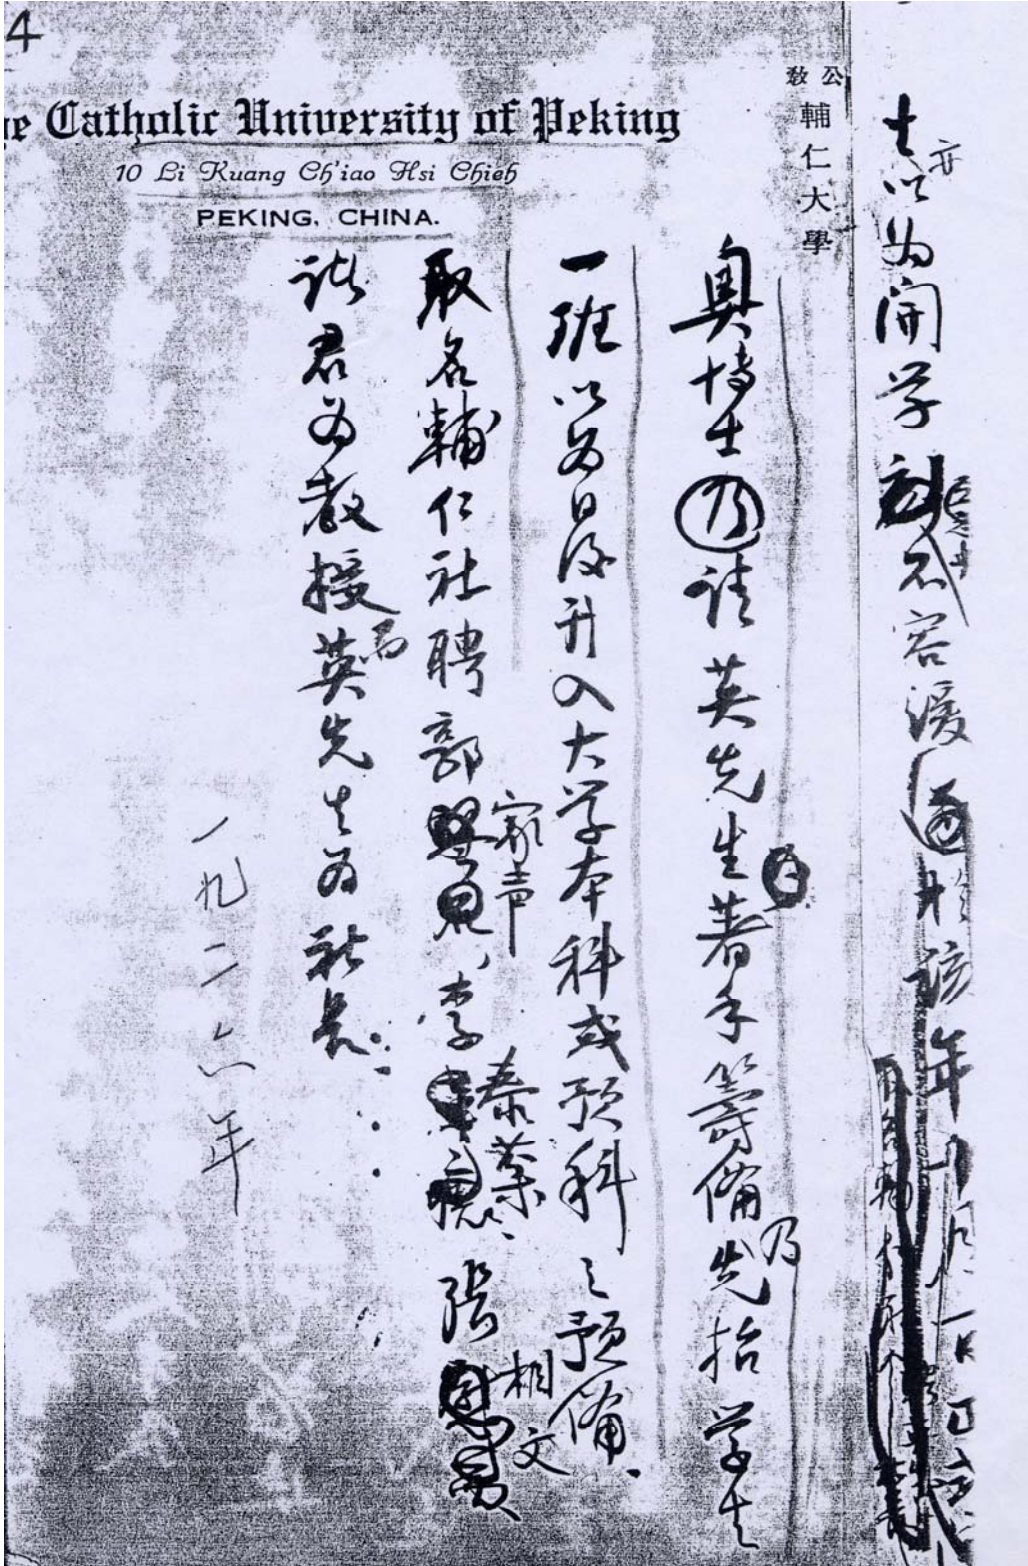 4
e Catholic University of Peking
10 Li Kuang Ch'iao Hsi Chieh
PEKING, CHINA.
公教
輔仁大學
士亦以为開学不容缓 该年
奥博士请英先生着手筹備乃先招学生
一班以为日后升入大学本科或预科之预備.
取名輔仁社聘郭家声、李泰棻、張相文
诸君为教授而英先生为社長.
一九二六年